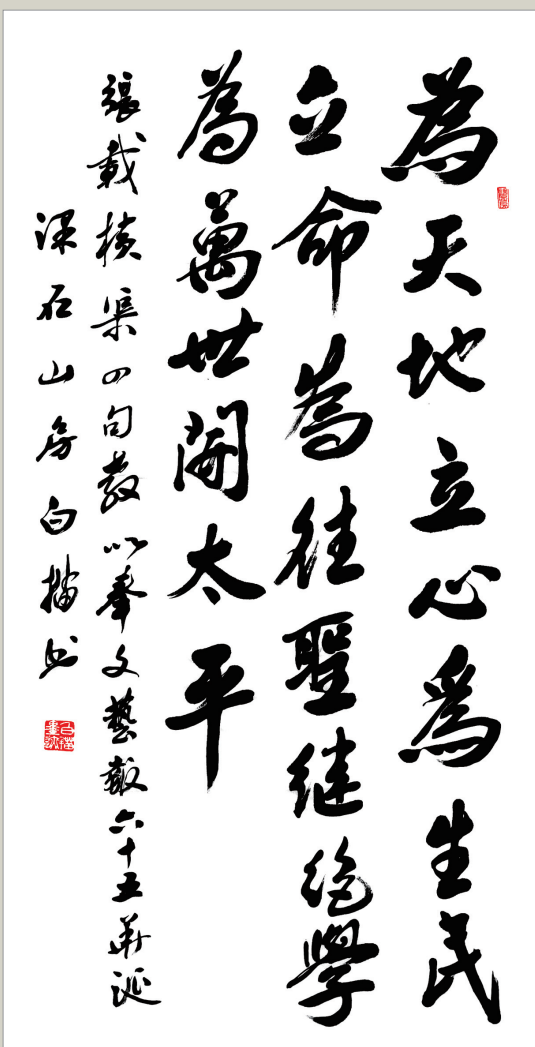 為天地立心為生民
立命為往聖继绝學
為萬世開太平
張載橫渠四句教以奉文藝報六十五華誕
深石山房白描书